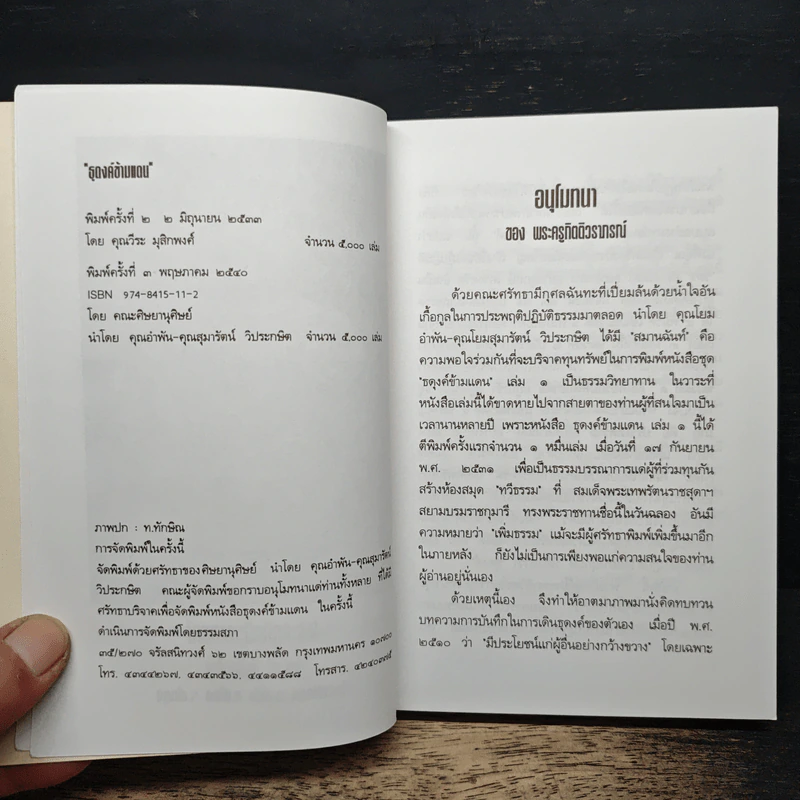 "ธุดงค์ข้ามแดน"
พิมพ์ครั้งที่ ๒ ๒ มิถุนายน ๒๕๓๓
โดย คุณวีระ มุสิกพงศ์ จำนวน ๕,๐๐๐ เล่ม
พิมพ์ครั้งที่ ๓ พฤษภาคม ๒๕๔๐
ISBN 974-8415-11-2
โดย คณะศิษยานุศิษย์
นำโดย คุณอำพัน-คุณสุมารัตน์ วิประกษิต จำนวน ๕,๐๐๐ เล่ม
ภาพปก : ท.ทักษิณ
การจัดพิมพ์ในครั้งนี้
จัดพิมพ์ด้วยศรัทธาของศิษยานุศิษย์ นำโดย คุณอำพัน-คุณสุมารัตน์
วิประกษิต คณะผู้จัดพิมพ์ขอกราบอนุโมทนาแด่ท่านทั้งหลาย ที่ได้มี
ศรัทธาบริจาคเพื่อจัดพิมพ์หนังสือธุดงค์ข้ามแดน ในครั้งนี้
ดำเนินการจัดพิมพ์โดยธรรมสภา
๓๕/๒๗๐ จรัลสนิทวงศ์ ๖๒ เขตบางพลัด กรุงเทพมหานคร ๑๐๗๐๐
โทร. ๔๓๔๔๒๖๗, ๔๓๔๓๕๖๖, ๔๔๑๑๕๘๘ โทรสาร.
อนุโมทนา
ของ พระครูกิตติวราภรณ์
ด้วยคณะศรัทธามีกุศลฉันทะที่เปี่ยมล้นด้วยน้ำใจอัน
เกื้อกูลในการประพฤติปฏิบัติธรรมมาตลอด นำโดย คุณโยม
อำพัน-คุณโยมสุมารัตน์ วิประกษิต ได้มี "สมานฉันท์" คือ
ความพอใจร่วมกันที่จะบริจาคทุนทรัพย์ในการพิมพ์หนังสือชุด
"ธดุงค์ข้ามแดน" เล่ม ๑ เป็นธรรมวิทยาทาน ในวาระที่
หนังสือเล่มนี้ได้ขาดหายไปจากสายตาของท่านผู้ที่สนใจมาเป็น
เวลานานหลายปี เพราะหนังสือ ธุดงค์ข้ามแดน เล่ม ๑ นี้ได้
ตีพิมพ์ครั้งแรกจำนวน ๑ หมื่นเล่ม เมื่อวันที่ ๑๗ กันยายน
พ.ศ. ๒๕๓๑ เพื่อเป็นธรรมบรรณาการแด่ผู้ที่ร่วมทุนกัน
สร้างห้องสมุด "ทวีธรรม" ที่ สมเด็จพระเทพรัตนราชสุดาฯ
สยามบรมราชกุมารี ทรงพระราชทานชื่อนี้ในวันฉลอง อันมี
ความหมายว่า "เพิ่มธรรม" แม้จะมีผู้ศรัทธาพิมพ์เพิ่มขึ้นมาอีก
ในภายหลัง ก็ยังไม่เป็นการเพียงพอแก่ความสนใจของท่าน
ผู้อ่านอยู่นั่นเอง
ด้วยเหตุนี้เอง จึงทำให้อาตมาภาพมานั่งคิดทบทวน
บทความการบันทึกในการเดินธุดงค์ของตัวเอง เมื่อปี พ.ศ.
๒๕๑๐ ว่า "มีประโยชน์แก่ผู้อื่นอย่างกว้างขวาง" โดยเฉพาะ